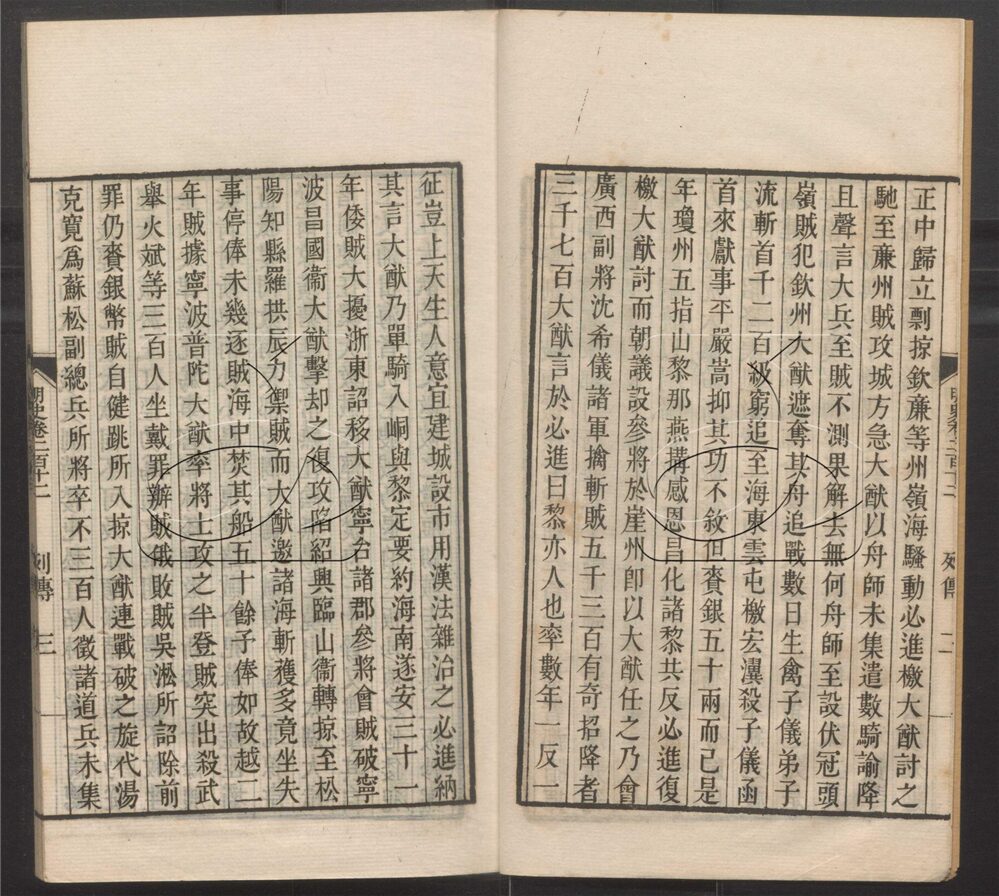 正中歸立剽掠欽廉等州嶺海騷動必進檄大猷討之
馳至廉州賊攻城方急大猷以舟師未集遣數騎諭降
且聲言大兵至賊不測果解去無何舟師至設伏冠頭
嶺賊犯欽州大猷遮奪其舟追戰數日生禽子儀弟子
流斬首千二百級窮追至海東雲屯檄宏瀷殺子儀函
首來獻事平嚴嵩抑其功不敘但賚銀五十兩而已是
年瓊州五指山黎那燕搆感恩昌化諸黎共反必進復
檄大猷討而朝議設參將於崖州卽以大猷任之乃會
廣西副將沈希儀諸軍擒斬賊五千三百有奇招降者
三千七百大猷言於必進曰黎亦人也率數年一反一
明史卷二百十二
列傳
二
征豈上天生人意宜建城設市用漢法雜治之必進納
其言大猷乃單騎入峒與黎定要約海南遂安三十一
年倭賊大擾浙東詔移大猷寧台諸郡參將會賊破寧
波昌國衞大猷擊却之復攻陷紹興臨山衞轉掠至松
陽知縣羅拱辰力禦賊而大猷邀諸海斬獲多竟坐失
事停俸未幾逐賊海中焚其船五十餘予俸如故越二
年賊據寧波普陀大猷率將士攻之半登賊突出殺武
舉火斌等三百人坐戴罪辦賊俄敗賊吳淞所詔除前
罪仍賚銀幣賊自健跳所入掠大猷連戰破之旋代湯
克寬爲蘇松副總兵所將卒不三百人徵諸道兵未集
明史卷二百十二
列傳
三